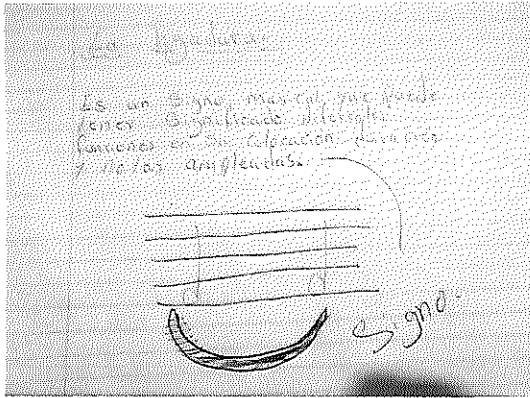 La ligadura:
Es un signo, musical, que puede
tener significado
funciones en su colocación
y notas empleadas.
Signo.